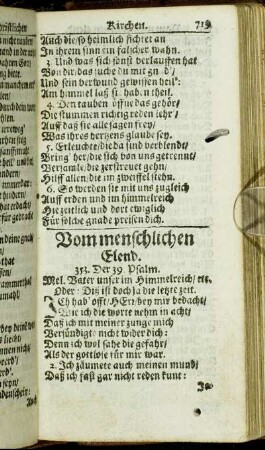 Kirchen. 719
Auch die so heimlich fichtet an
In ihrem sinn ein falscher wahn.
3. Und was sich sonst verlauffen hat
Von dir das suche du mit gnad'/
Und sein verwund gewissen heil':
Am himmel laß sie haben theil.
4. Den tauben öffne das gehör/
Die stummen richtig reden lehr/
Auff daß sie alle sagen frey/
Was ihres hertzens glaube sey.
5. Erleuchte/die da sind verblendt/
Bring' her/die sich von uns getrennt/
Versamle/die zerstreuet gehn/
Hilff allen die im zweiffel stehn.
6. So werden sie mit uns zugleich
Auff erden und im himmelreich
Hie zeitlich und dort ewiglich
Für solche gnade preisen dich.
Vom menschlichen
Elend.
353. Der 39. Psalm.
Mel. Vater unser im Himmelreich/ etc.
Oder: Diß ist doch ja die letzte zeit.
Ich hab' offt/HErr/bey mir bedacht/
Wie ich die worte nehm in acht/
Daß ich mit meiner zunge mich
Versündigt' nicht wider dich:
Denn ich wol sahe die gefahr/
Als der gottlose für mir war.
2. Ich zäumete auch meinen mund/
Daß ich fast gar nicht reden kunt: